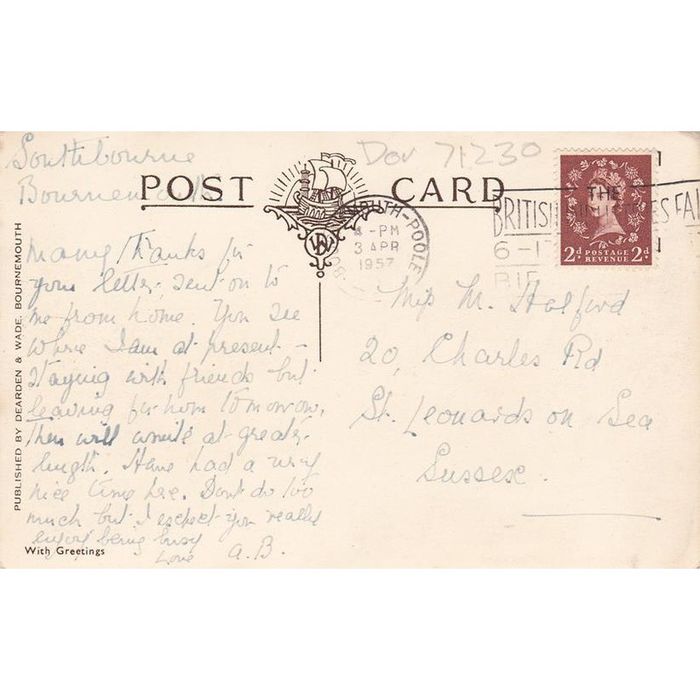 Southbourne
Bournemouth
Dov 71230
POST CARD
MOUTH-POOLE
4-PM
3 APR
1957
THE
BRITISH INDUSTRIES FAI
6-1
BIF
2D POSTAGE REVENUE 2D
Many thanks for
your letter, sent on to
me from home. You see
where I am at present -
staying with friends but
leaving for home tomorrow,
then will write at greater
length. Have had a very
nice time here. Don't do too
much but I expect you really
enjoy being busy
Love A.B.
Miss M. Halford
20, Charles Rd
St. Leonards on Sea
Sussex
PUBLISHED BY DEARDEN & WADE, BOURNEMOUTH
With Greetings